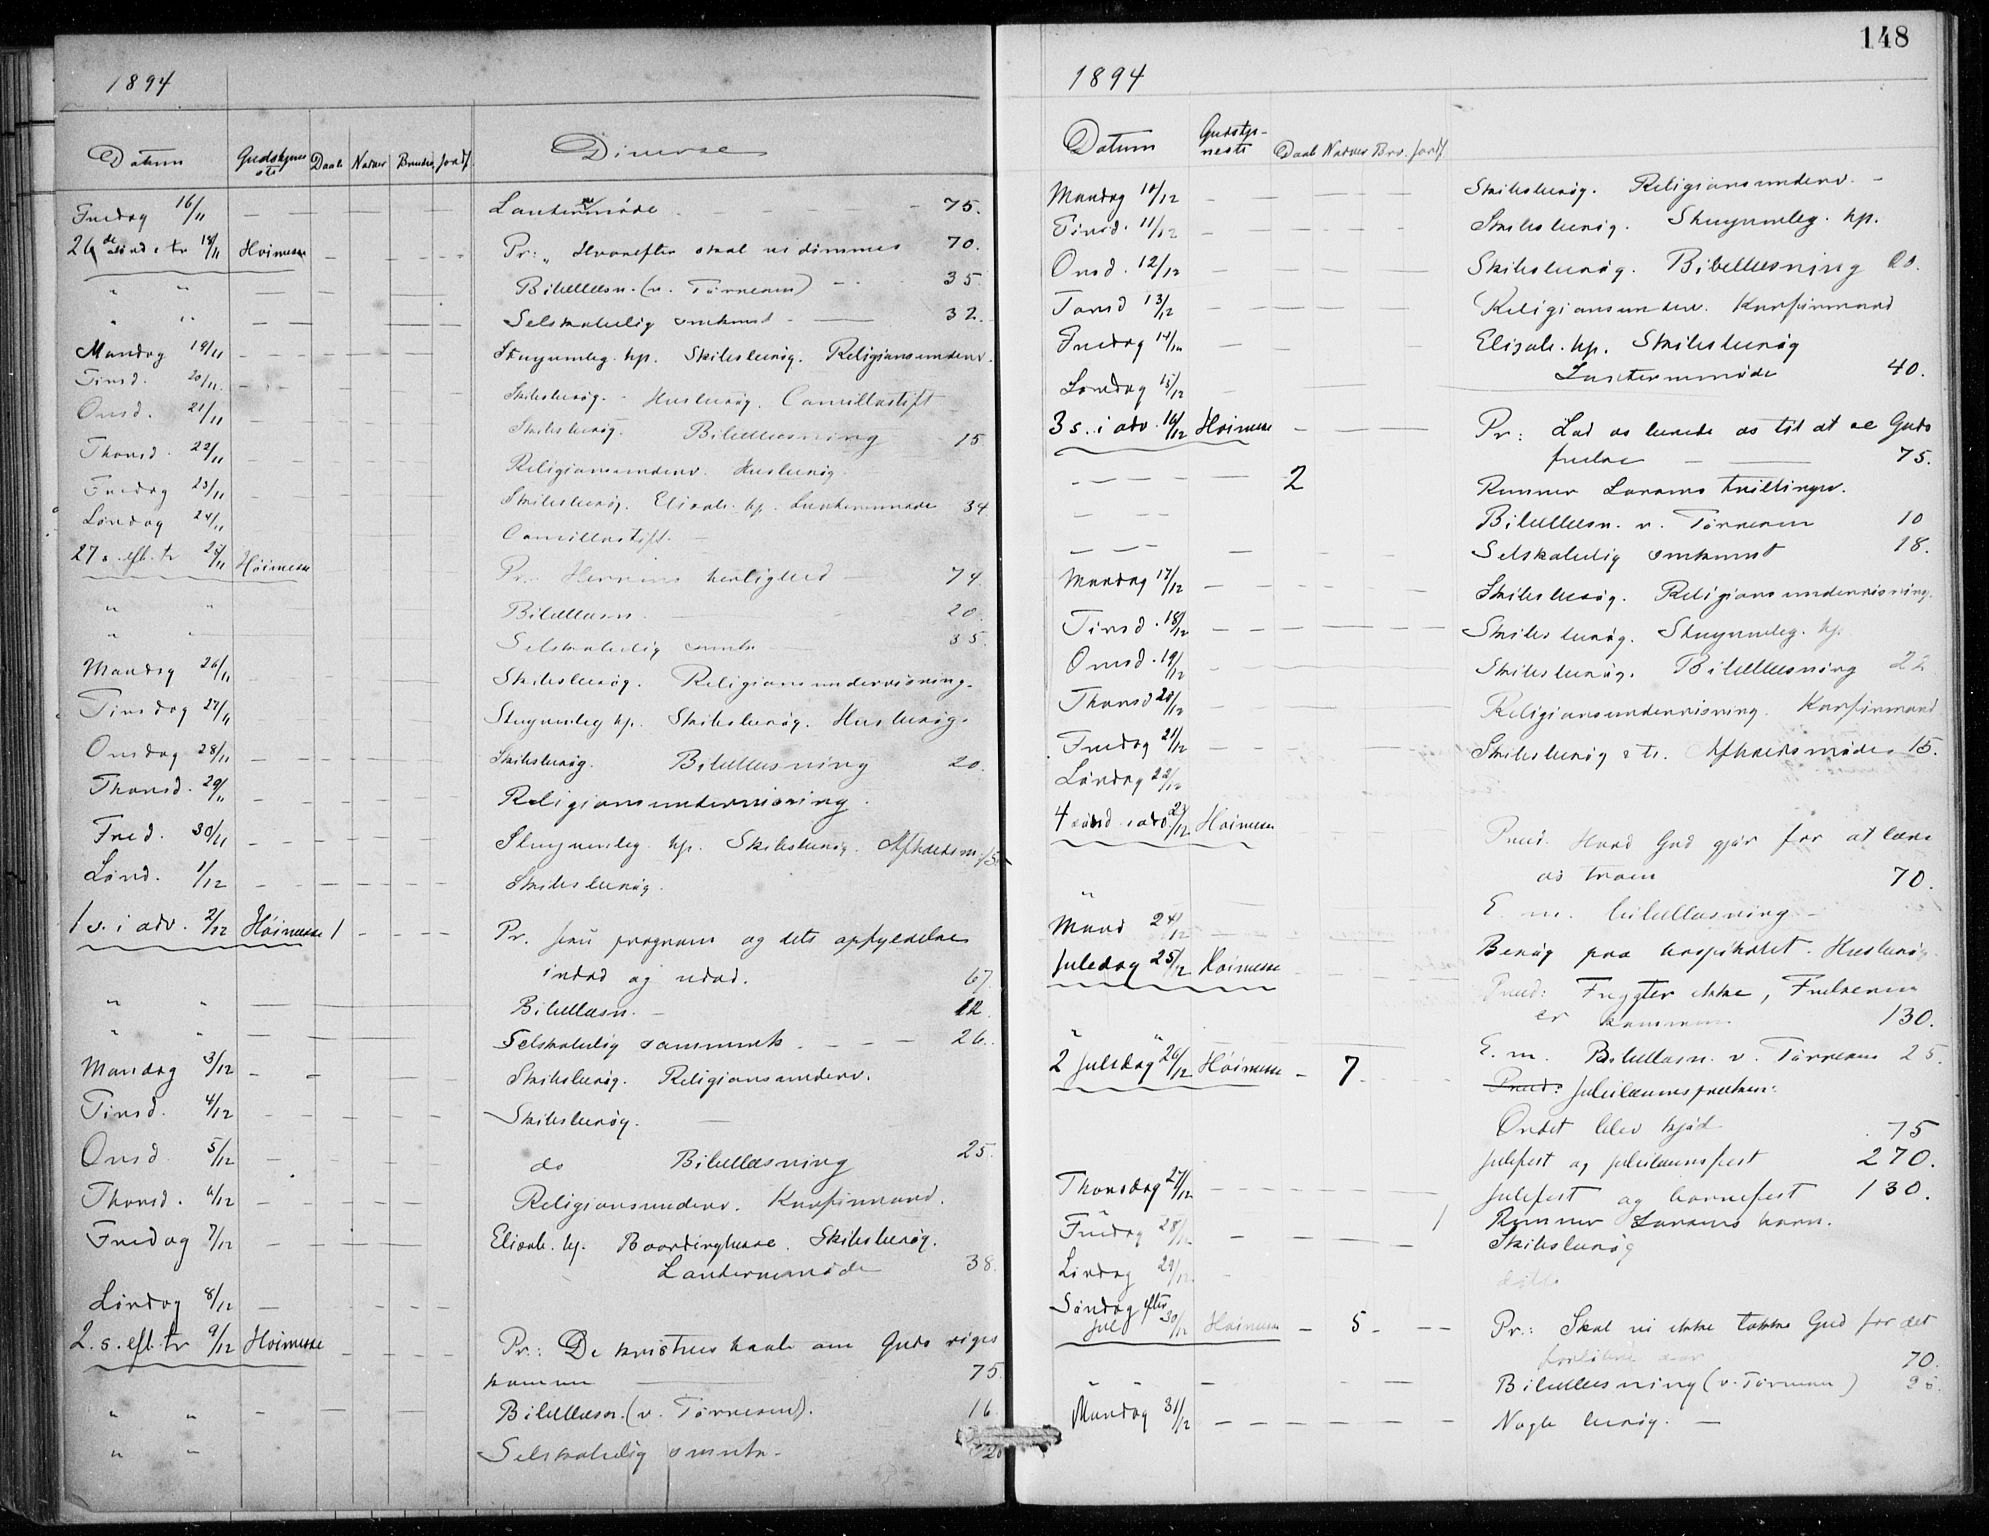 1894
Datum Gudstjeneste Daab Nadver Brudev. Jordf. Diverse
Fredag 16/11 — — — — — Lanternemøde 75.
26de sönd e tr 18/11 Høimesse — — — — Pr: „Hvorefter skal vi dömmes 70.
" " — — — — — Bibellæsn. (v. Törnesen) 35
" " — — — — — Selskabelig smkmst 32.
Mandag 19/11 — — — — — Skuymnleg. hp. Skibsbesög. Religionsunderv.
Tirsd. 20/11 — — — — — Skibsbesög. - Husbesög. Camillastift
Onsd. 21/11 Skibsbesög. Bibellæsning 15
Thorsd. 22/11 Religionsunderv. Husbesög.
Fredag 23/11 Skibsbesög. Elisab. hp. Lanternemøde 34.
Lördag 24/11 Camillastift. —
27 s. eft. tr 25/11 Høimesse Pr.: Herrens herlighed — 74.
" " Bibellæsn. — 20.
" " Selskabelig smmk — 35.
Mandag 26/11 Skibsbesög. Religionsundervisning.
Tirsdag 27/11 Skuymnleg hp. Skibsbesög. Husbesög.
Onsdag 28/11 — — — — — Skibsbesög. Bibellæsning 20.
Thorsd. 29/11 — — — — — Religionsundervisning.
Fred. 30/11 — — — — — Skuymnleg. hp. Skibsbesög. Afskedsm. 15
Lörd. 1/12 — — — — — Skibsbesög.
1 s. i adv. 2/12 Høimesse 1 — — — Pr. Jesu program og dets opfyldelse
indad og udad. 67.
" " — — — Bibellæsn. — 12.
" " — — — Selskabelig sammenk. — — — 26.
Mandag 3/12 — — — — Skibsbesög. Religionsunderv.
Tirsd. 4/12 — — — — — Skibsbesög. —
Onsd. 5/12 — — — — — do Bibellæsning 25.
Thorsd. 6/12 — — — — — Religionsunderv. Konfirmand.
Fredag 7/12 — — — — — Elisab. hp. Boardinghuse. Skibsbesög.
Lanternemøde 38.
Lördag 8/12 — — — — —
2. s. eft. tr 9/12 Høimesse — — — — Pr.: De kristnes haab om Guds riges
kommen — 75
" " — — — — — Bibellæsn. (v. Törnesen). 16.
" " Selskabelig smmk. 20
148
1894
Datum Gudstjeneste Daab Nadver Brv. Jordf.
Mandag 10/12 — — — — — Skibsbesög. Religionsunderv. —
Tirsd. 11/12 — — — — — Skibsbesög. Skuymnleg. hp.
Onsd. 12/12 — — — — — Skibsbesög. Bibellæsning 20.
Torsd 13/12 — — — — — Religionsunderv. Konfirmand
Fredag 14/12 — — — — — Elisab. hp. Skibsbesög
Lanternemøde 40.
Lördag 15/12 —
3 s. i adv. 16/12 Høimesse — — — — Pr: Lad os berede os til at se Guds
frelse — — 75.
— — — — 2 Renner Larsens tvillinger.
— — — Bibellæsn. v. Törnesen 10
— — — Selskabelig smkmst 18.
Mandag 17/12 — — — — — Skibsbesög. Religionsundervisning.
Tirsd. 18/12 — — — — — Skibsbesög. Skuymnleg. hp.
Onsd. 19/12 — — — — — Skibsbesög. Bibellæsning 22
Thorsd 20/12 — — — — — Religionsundervisning. Konfirmand
Fredag 21/12 — — — — — Skibsbesög Afskedsmøde 15.
Lördag 22/12
4 sönd i adv 23/12 Høimesse Præd. Hvad Gud gjör for at lære
os troen 70.
" E. m. bibellæsning —
Mand 24/12 — Besög paa hospitalet. Husbesög.
Juledag 25/12 Høimesse Præd: Frygter ikke, Frelseren
er kommen 130.
" " E. m. Bibellæsn. v. Törnesen 25.
2 Juledag 26/12 Høimesse — 7. Præd: Jubilæumspræken:
Ordet blev kjöd 75
Julefest og jubilæumsfest 270.
Thorsdag 27/12 — — — — — Julefest og barnefest 130.
Fredag 28/12 — — — — 1 Renner Larsens barn.
Skibsbesög
Lördag 29/12 — ditto
Söndag efter Jul 30/12 Høimesse — 5 — — — Pr.: Skal vi ikke takke Gud for det
forlöbne aar 70.
" " — — — — Bibellæsning (v. Törnesen)
Mandag 31/12 — — — — — Nogle besög. —